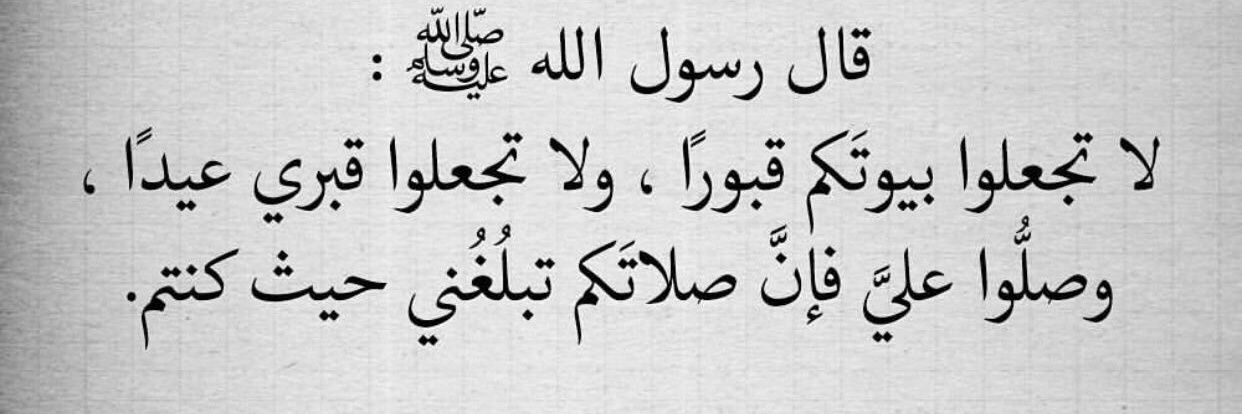 قال رسول الله ﷺ :
لا تجعلوا بيوتَكم قبورًا ، ولا تجعلوا قبري عيدًا ،
وصلُّوا عليَّ فإنَّ صلاتَكم تبلُغُني حيث كنتم.